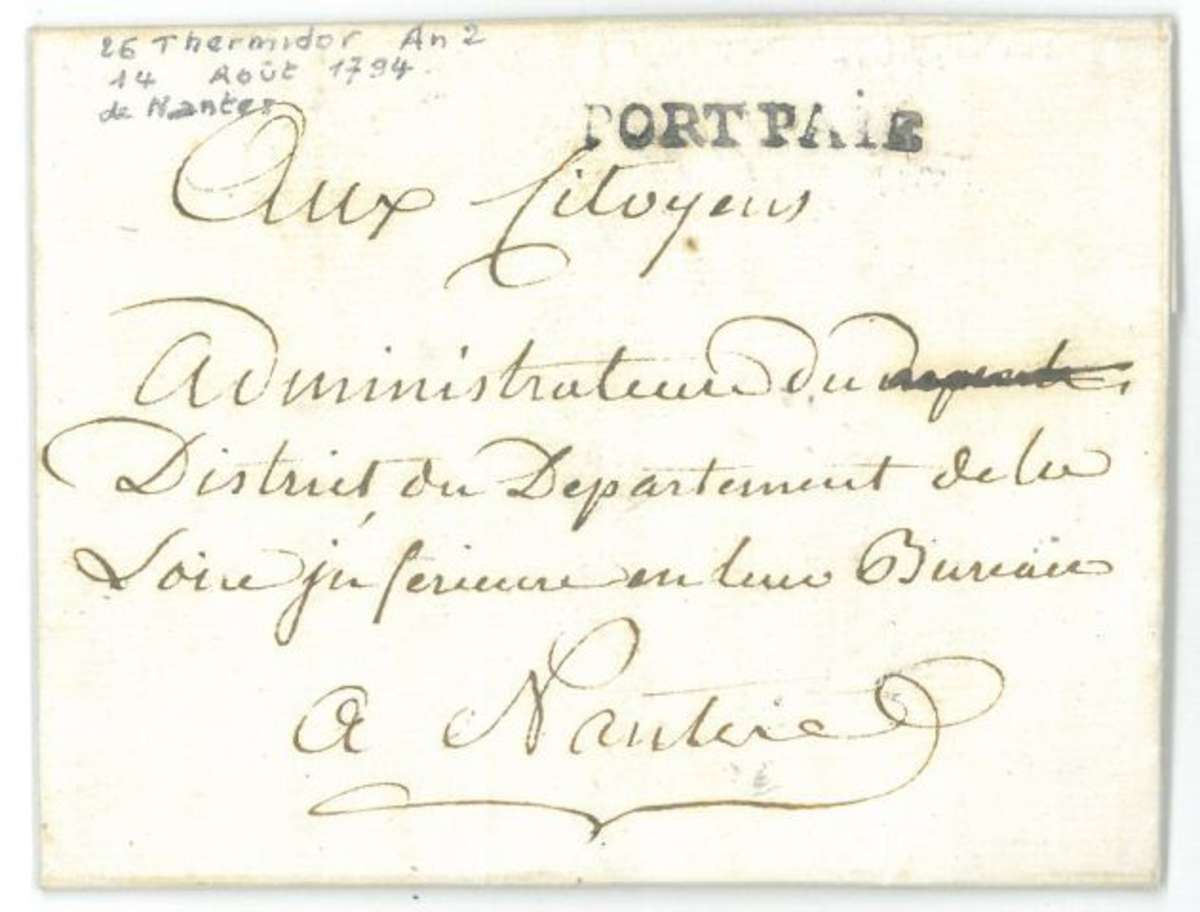 26 Thermidor An 2
14 Août 1794
de Nantes
PORT PAIE
Aux Citoyens
Administrateurs du
District du Departement de la
Loire jnferieure en leur Bureau
a Nantes